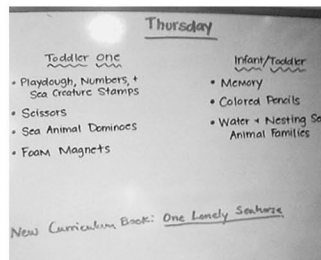 Thursday
Toddler One
• Playdough, Numbers, +
Sea Creature Stamps
• Scissors
• Sea Animal Dominoes
• Foam Magnets
Infant/Toddler
• Memory
• Colored Pencils
• Water + Nesting
Animal Families
New Curriculum Book: One Lonely Seahorse